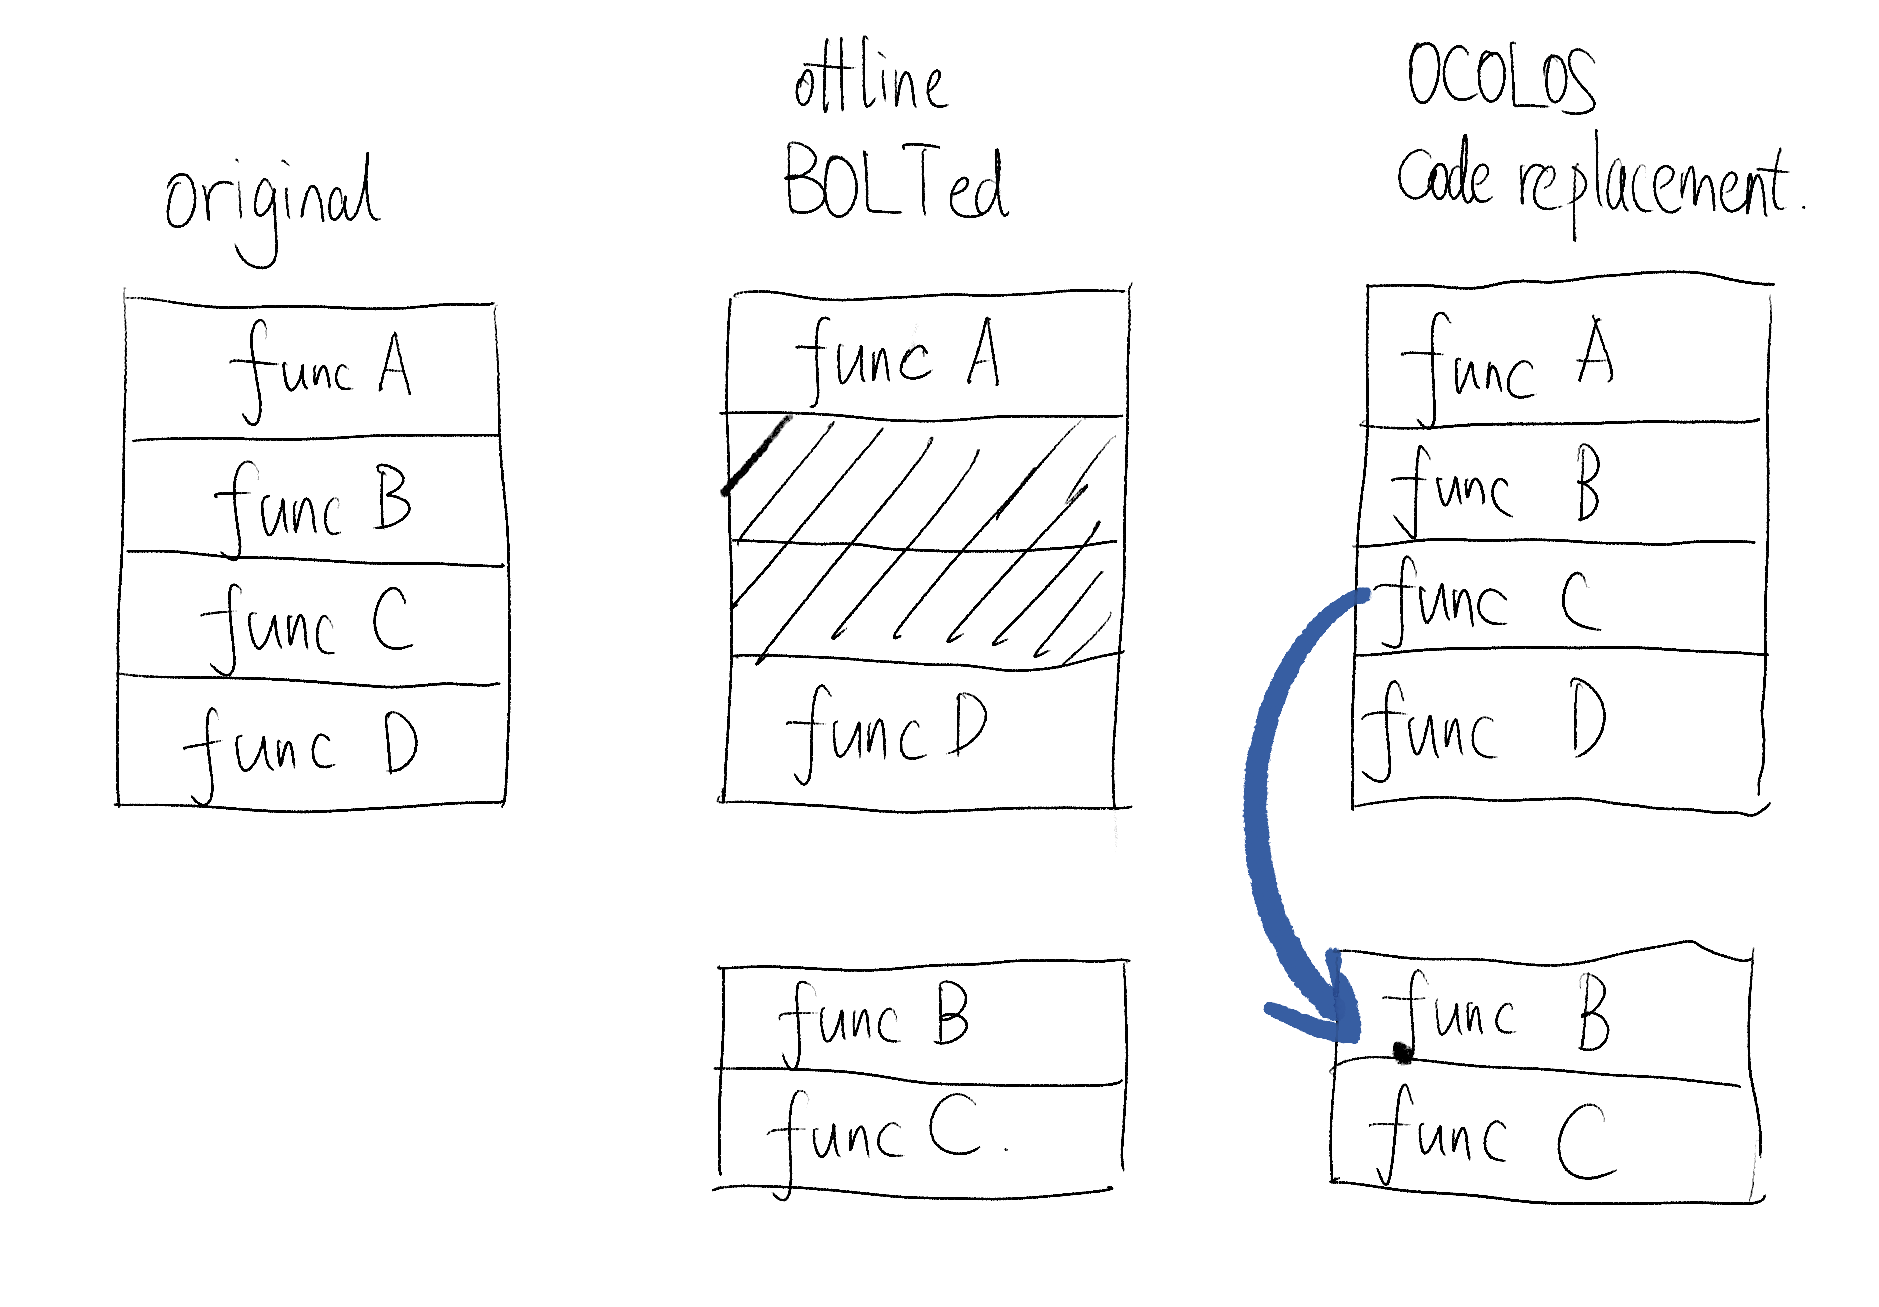 original
func A
func B
func C
func D
offline
BOLTed
func A
func D
func B
func C.
OCOLOS
Code replacement.
func A
func B
func C
func D
func B
func C